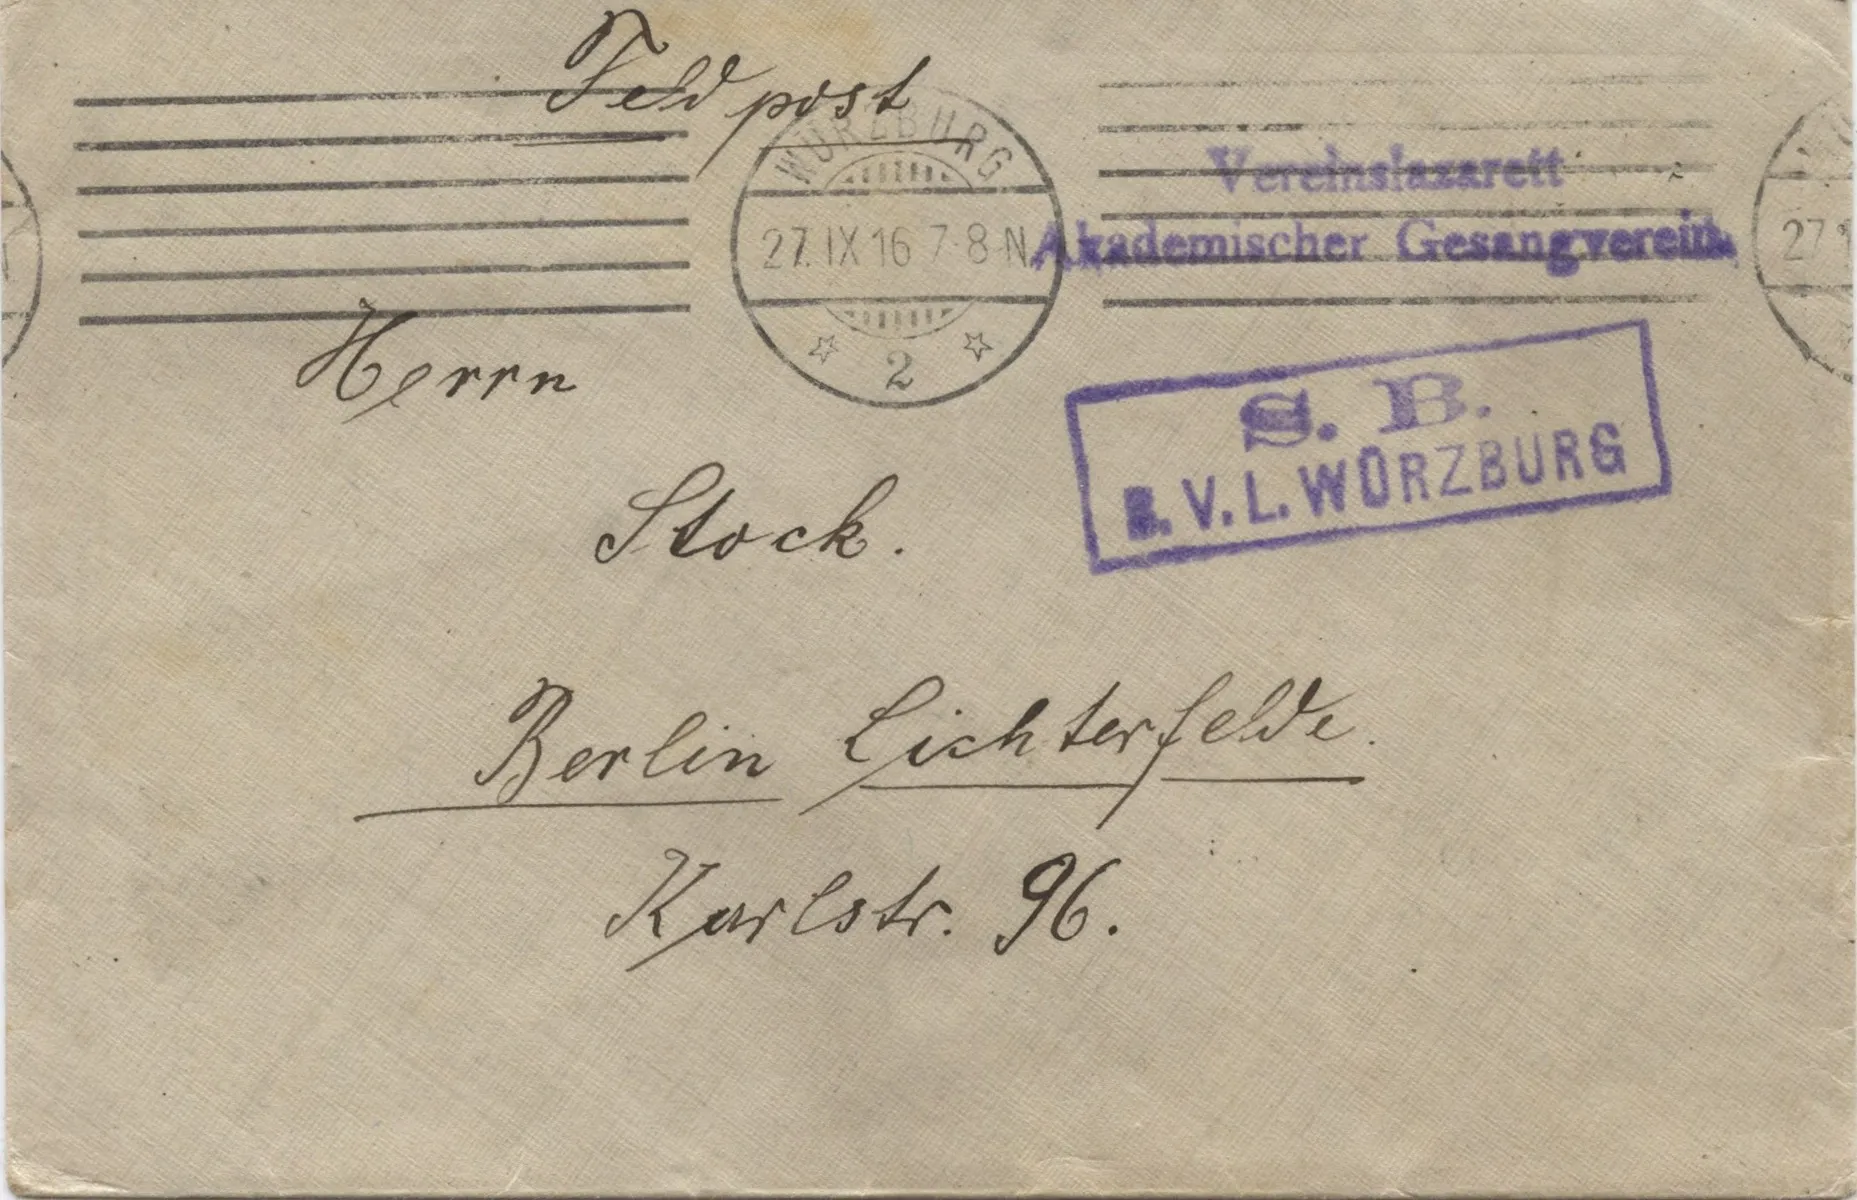 Feldpost
WÜRZBURG
27. IX 16 7-8 N.
2
Vereinslazarett
Akademischer Gesangverein
Herrn
S. B.
V. L. WÜRZBURG
Stock.
Berlin Lichterfelde.
Karlstr. 96.
27